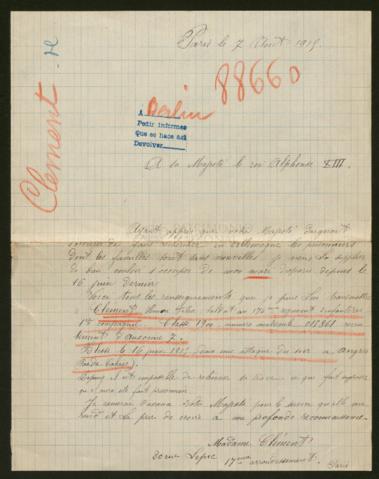 Paris le 7 Août 1915
Clement
88660
A Berlin
Pedir informes
Que se hace acá
Devolver
A sa Majesté le roi Alphonse XIII.
Ayant appris que votre Majesté daignait
dont les familles sont sans nouvelles je viens la supplier
de bien vouloir s'occuper de mon mari disparu depuis le
16 juin dernier
Voici tous les renseignements que je puis lui transmettre
Clement soldat au 170 regiment infanterie
1re compagnie Classe 1900 numero matricule recru
tement d'Auxonne
Blessé le 16 juin 1915 dans une attaque du soir a Angres
(Pas de Calais).
Depuis il est impossible de retrouver sa trace ce qui fait supposer
qu'il aurait été fait prisonnier
Je remercie d'avance Votre Majesté pour le
et la prie de croire a ma profonde reconnaissance.
Madame Clement
rue Lepic
arrondissement
Paris